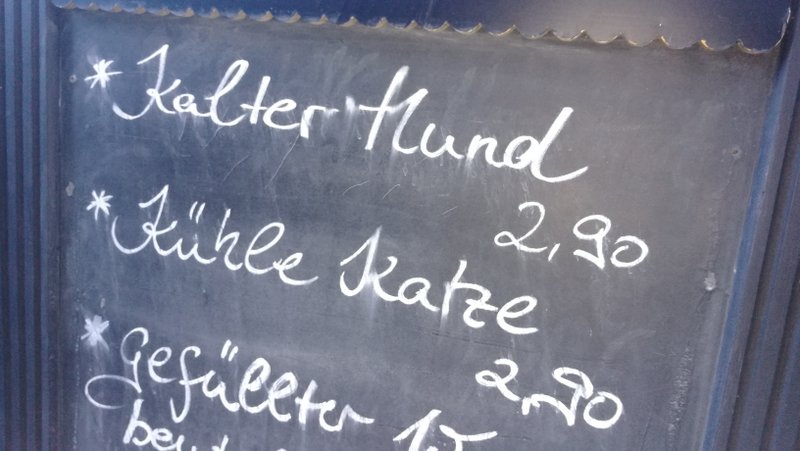 * Kalter Hund
2,90
* Kühle Katze
2,90
* Gefüllter